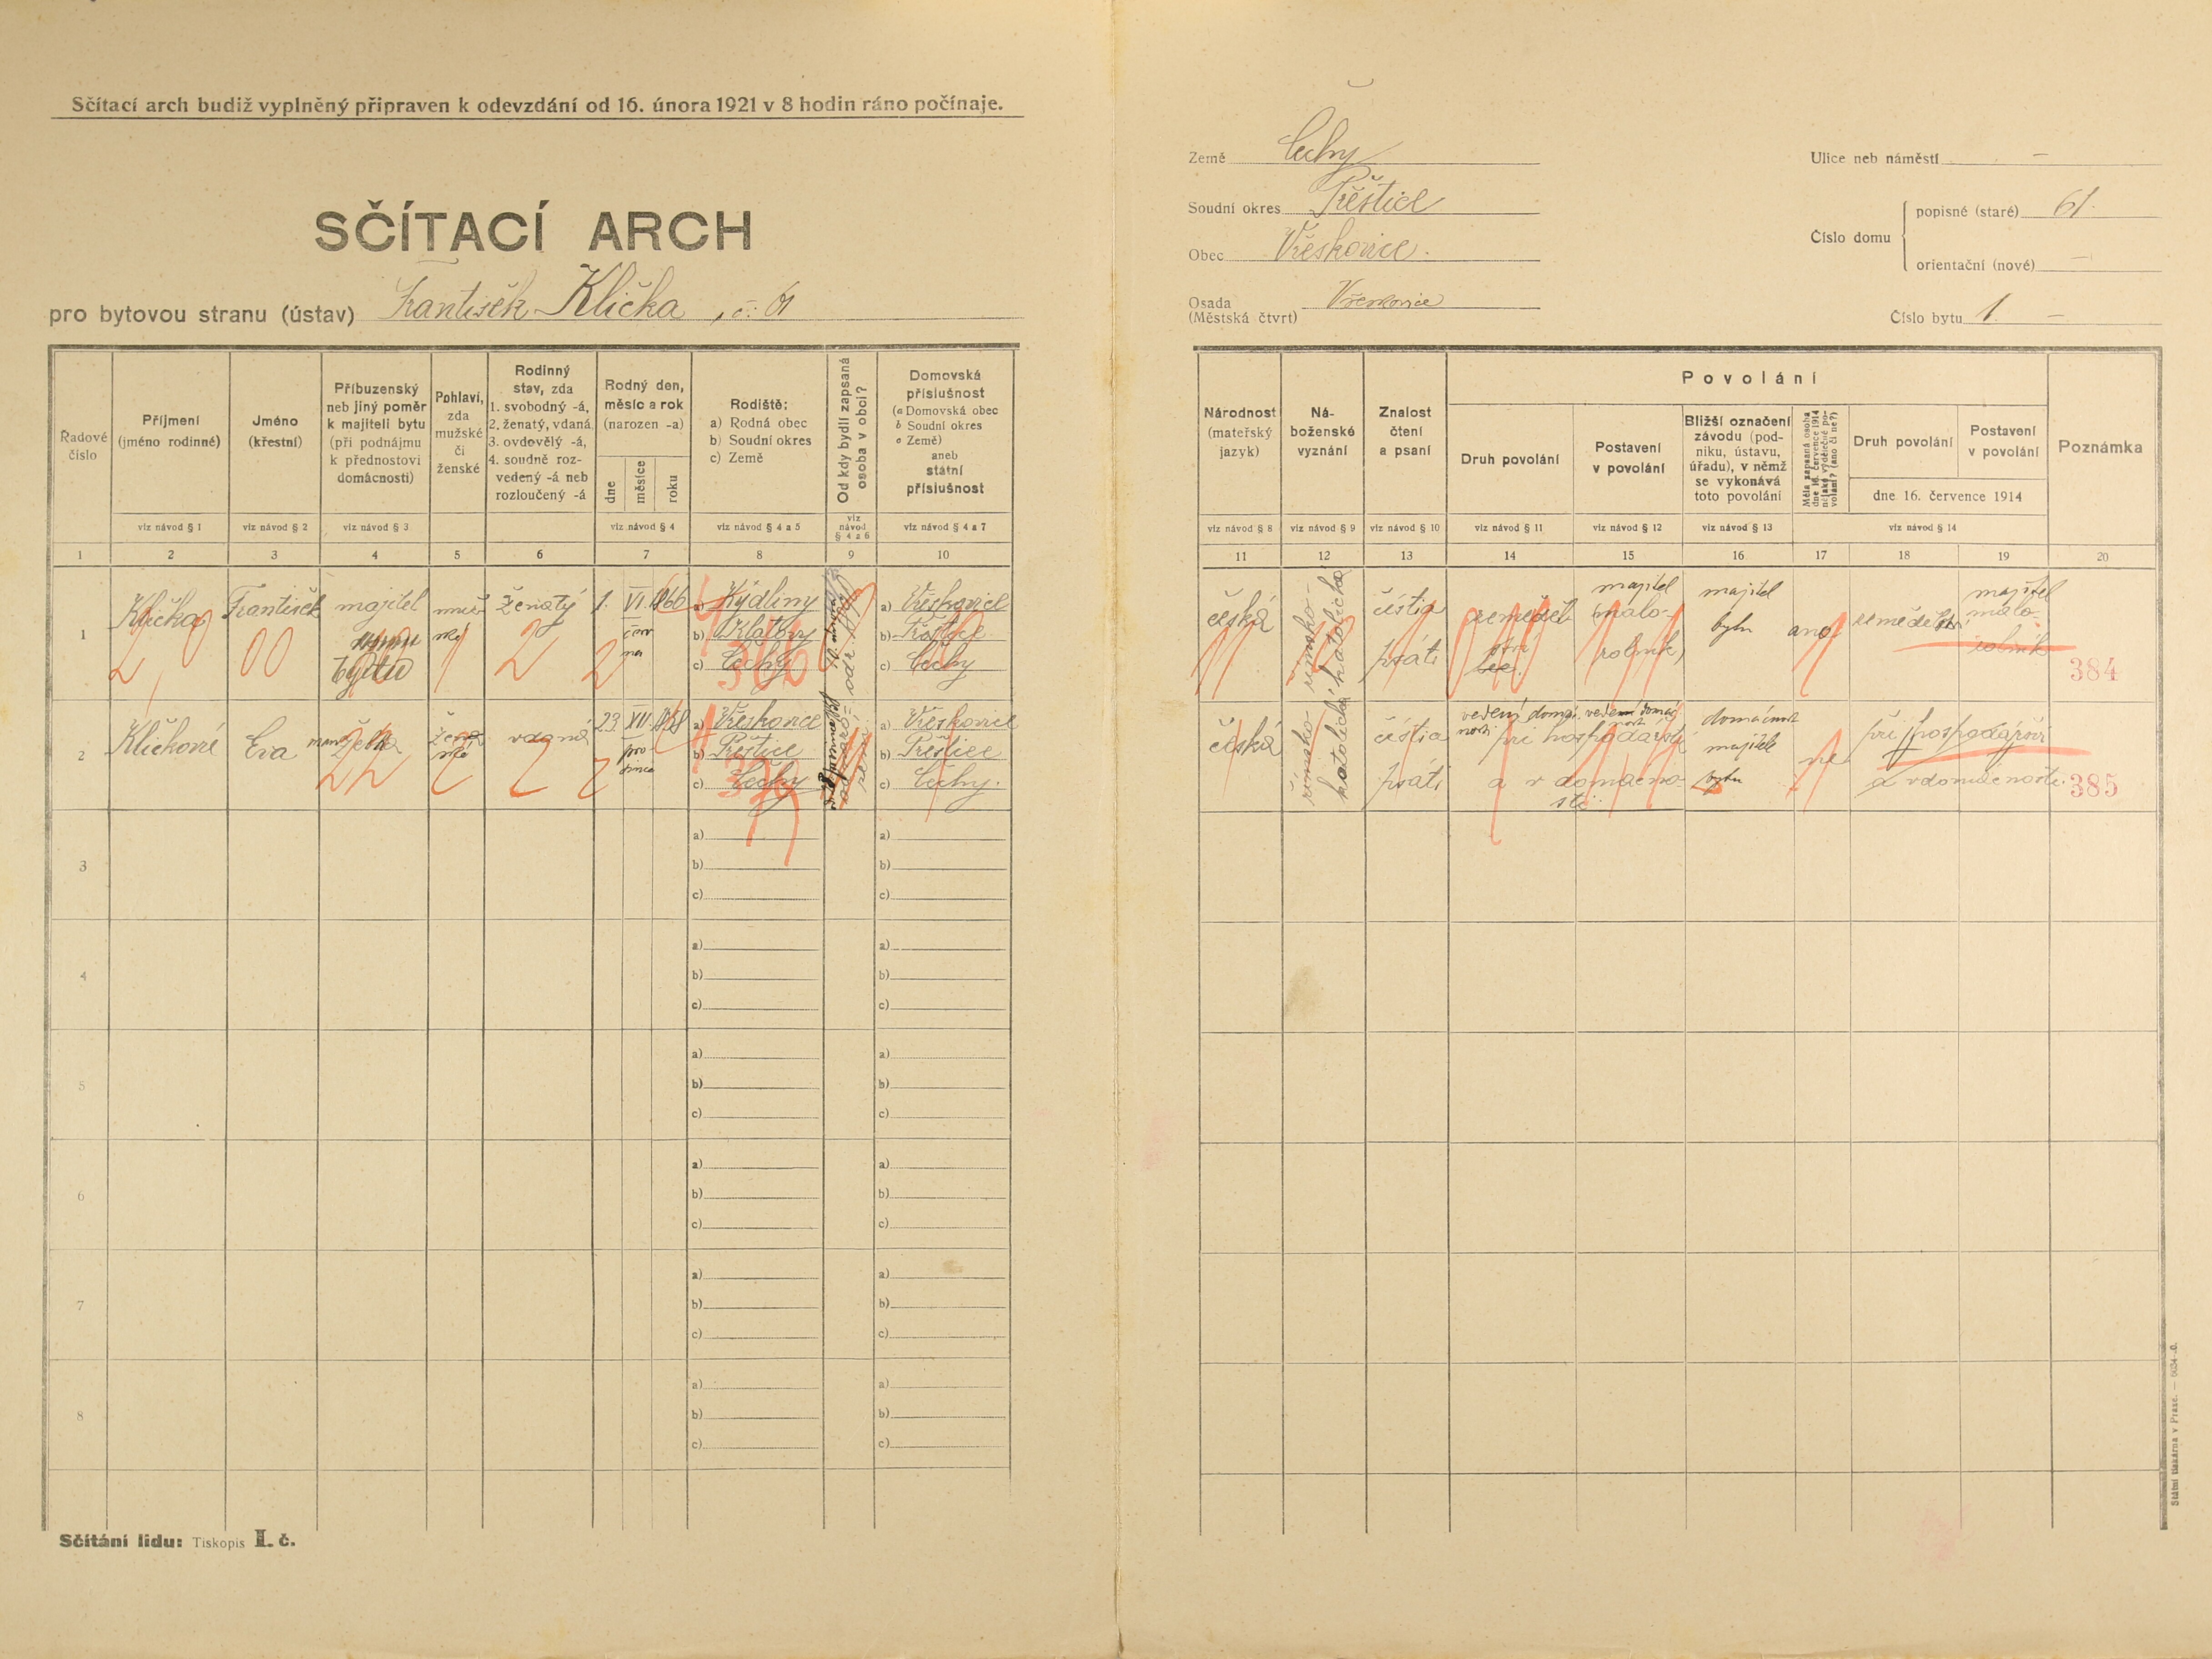 Sčítací arch budiž vyplněný připraven k odevzdání od 16. února 1921 v 8 hodin ráno počínaje.
SČÍTACÍ ARCH
pro bytovou stranu (ústav) František Klička, č. 61
Země Čechy
Soudní okres Přeštice
Obec Vřeskovice.
Osada Vřeskovice
(Městská čtvrt)
Ulice neb náměstí –
Číslo domu
popisné (staré) 61.
orientační (nové) –
Číslo bytu 1. –
Řadové číslo
Příjmení (jméno rodinné)
Jméno (křestní)
Příbuzenský neb jiný poměr k majiteli bytu (při podnájmu k přednostovi domácnosti)
Pohlaví, zda mužské či ženské
Rodinný stav, zda 1. svobodný -á, 2. ženatý, vdaná 3. ovdovělý -á, 4. soudně rozvedený -á neb rozloučený -á
Rodný den, měsíc a rok (narozen -a)
dne měsíce roku
Rodiště:
a) Rodná obec
b) Soudní okres
c) Země
Od kdy bydlí zapsaná osoba v obci?
Domovská příslušnost
(a Domovská obec
b Soudní okres
c Země)
aneb
státní příslušnost
viz návod § 1 viz návod § 2 viz návod § 3 viz návod § 4 viz návod § 4 a 5 viz návod § 4 a 6 viz návod § 4 a 7
1 2 3 4 5 6 7 8 9 10
Národnost (mateřský jazyk)
Náboženské vyznání
Znalost čtení a psaní
Povolání
Druh povolání
Postavení v povolání
Bližší označení závodu (podniku, ústavu, úřadu), v němž se vykonává toto povolání
Měla zapsaná osoba dne 16. července 1914 nějaké výdělečné povolání? (ano či ne?)
Druh povolání
Postavení v povolání
dne 16. července 1914
Poznámka
viz návod § 8 viz návod § 9 viz návod § 10 viz návod § 11 viz návod § 12 viz návod § 13 viz návod § 14
11 12 13 14 15 16 17 18 19 20
1 Klička František majitel bytu mužské ženatý 1. VI. 1866 června
a) Kydliny
b) Klatovy
c) Čechy
a) Vřeskovice
b) Přeštice
c) Čechy
česká římsko-katolické čísti a psáti majitel malorolník majitel bytu ano zemědělství majitel malorolník 384
2 Kličková Eva manželka ženské vdaná 23. XII. 1868 prosince
a) Vřeskovice
b) Přeštice
c) Čechy
a) Vřeskovice
b) Přeštice
c) Čechy.
česká římsko-katolické čísti a psáti vedení domácnosti při hospodářství a v domácnosti domácnost majitele bytu ne při hospodářství a v domácnosti. 385
3 a) b) c) a) b) c)
4 a) b) c) a) b) c)
5 a) b) c) a) b) c)
6 a) b) c) a) b) c)
7 a) b) c) a) b) c)
8 a) b) c) a) b) c)
Sčítání lidu: Tiskopis I. č.
Státní tiskárna v Praze.